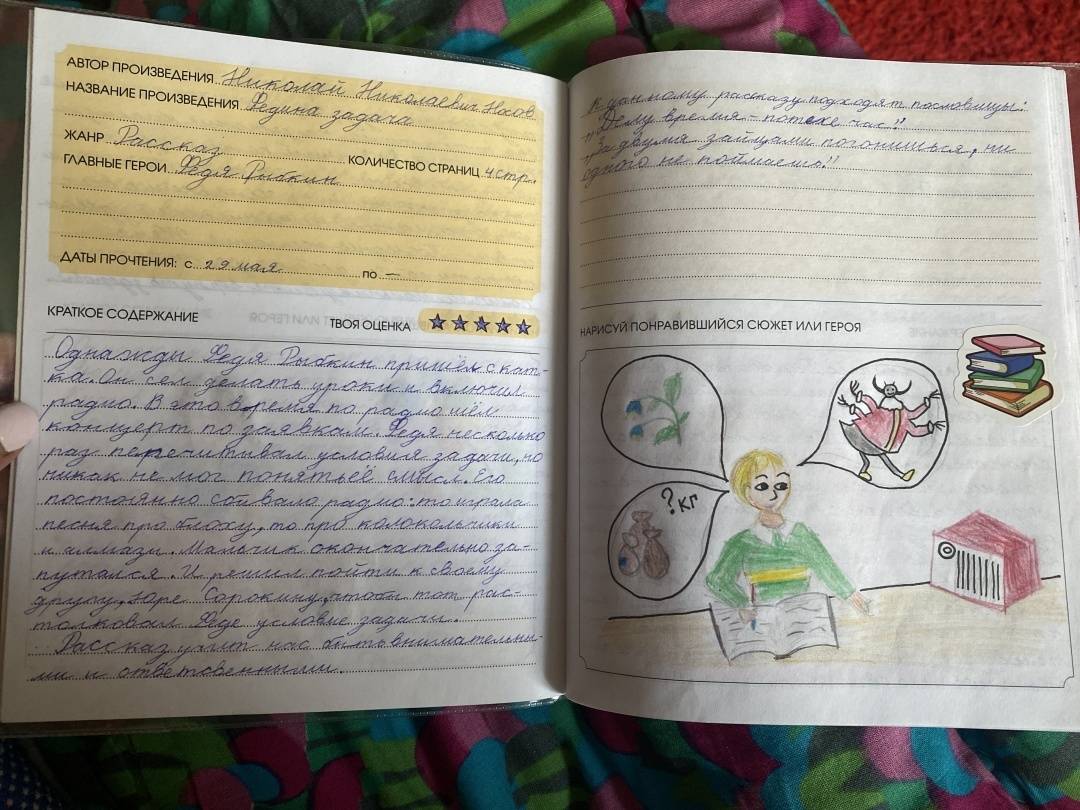 АВТОР ПРОИЗВЕДЕНИЯ Николай Николаевич Носов
НАЗВАНИЕ ПРОИЗВЕДЕНИЯ Федина задача
ЖАНР Рассказ КОЛИЧЕСТВО СТРАНИЦ 4 стр.
ГЛАВНЫЕ ГЕРОИ Федя Рыбкин
ДАТЫ ПРОЧТЕНИЯ: с 29 мая по —
КРАТКОЕ СОДЕРЖАНИЕ ТВОЯ ОЦЕНКА
Однажды Федя Рыбкин пришёл с кат-
ка. Он сел делать уроки и включил
радио. В это время по радио шёл
концерт по заявкам. Федя несколько
раз перечитывал условия задачи, но
никак не мог понять её смысл. Его
постоянно сбивало радио: то играла
песня про блоху, то про колокольчики
и алмазы. Мальчик окончательно за-
путался. И решил пойти к своему
другу, Юре Сорокину, чтобы тот рас-
толковал Феде условие задачи.
Рассказ учит нас быть внимательны-
ми и ответсвенными.
К данному рассказу подходят пословицы:
"Делу время - потехе час!"
"За двумя зайцами погонишься, ни
одного не поймаешь!"
НАРИСУЙ ПОНРАВИВШИЙСЯ СЮЖЕТ ИЛИ ГЕРОЯ
? кг